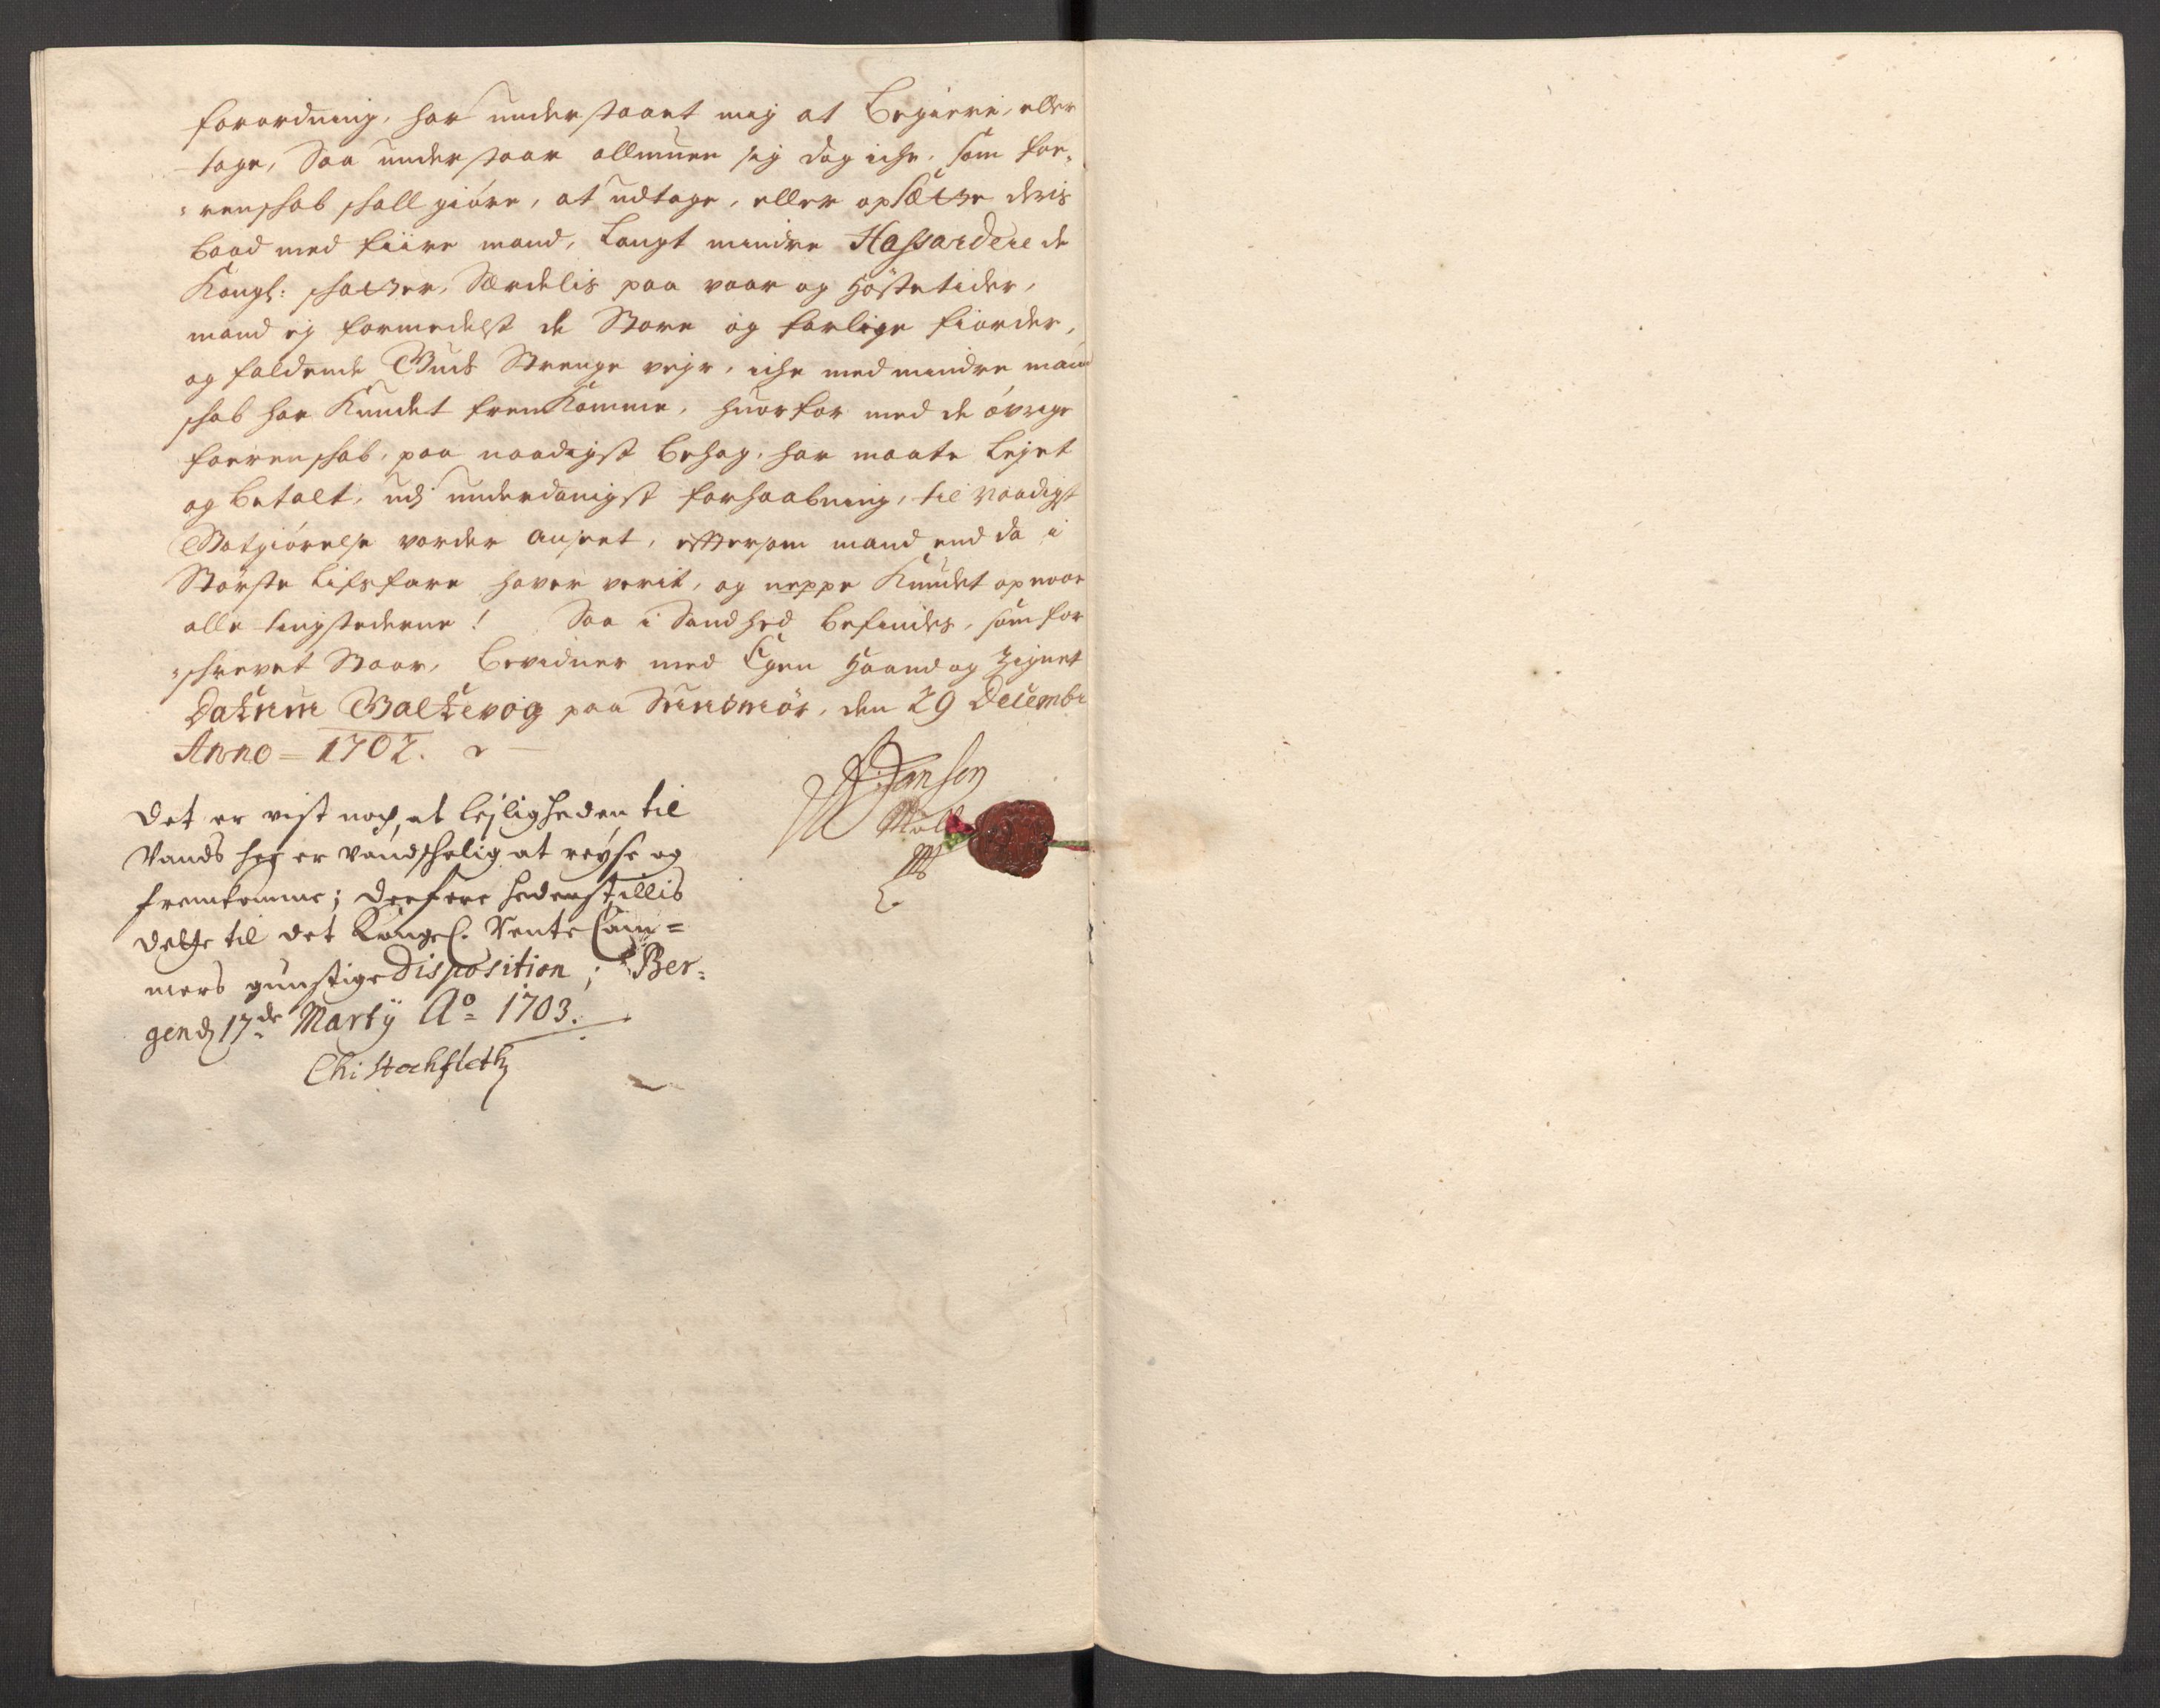 forordning, har understaaet mig at Begiere, eller
tage, Saa understaar allmuen sig dog iche, som for,
:renschab schall giöre, at udtage, eller opsætte deris
baad med fiire mand, Langt mindre Hassardere de
Kongl: schatter, Særdelis paa vaar og Høstetider,
mand ej formedelst de Store og farlige fiorder,
og faldende Guds Strenge vejr, iche med mindre mand
schab har Kundet fremkomme, huorfor med de øvrige
foerenschab, paa naadigst Behag, har maate Lejet
og betalt, udj underdanigst forhaabning, til Naadigst
Gotgiörelse vorder anseet, eftersom mand end da i
Störste Lifsfare haver verit, og neppe Kundet opnaae
alle tingstederne! Saa i Sandhed befindes, som for
:schrevet Staar, bevidner med Egen Haand og Zignet
Datum Valdevog paa Sundmör, den 29 Decembr
Anno = 1702.
Det er vist noch, at lejligheden til
Vands her er vandschelig at reyse og
fremkomme; derfore hedenstillis
dette til det Kongel. Rente Cam=
mers gunstige Disposition; Ber=
gen d 17de Martÿ Ao 1703.